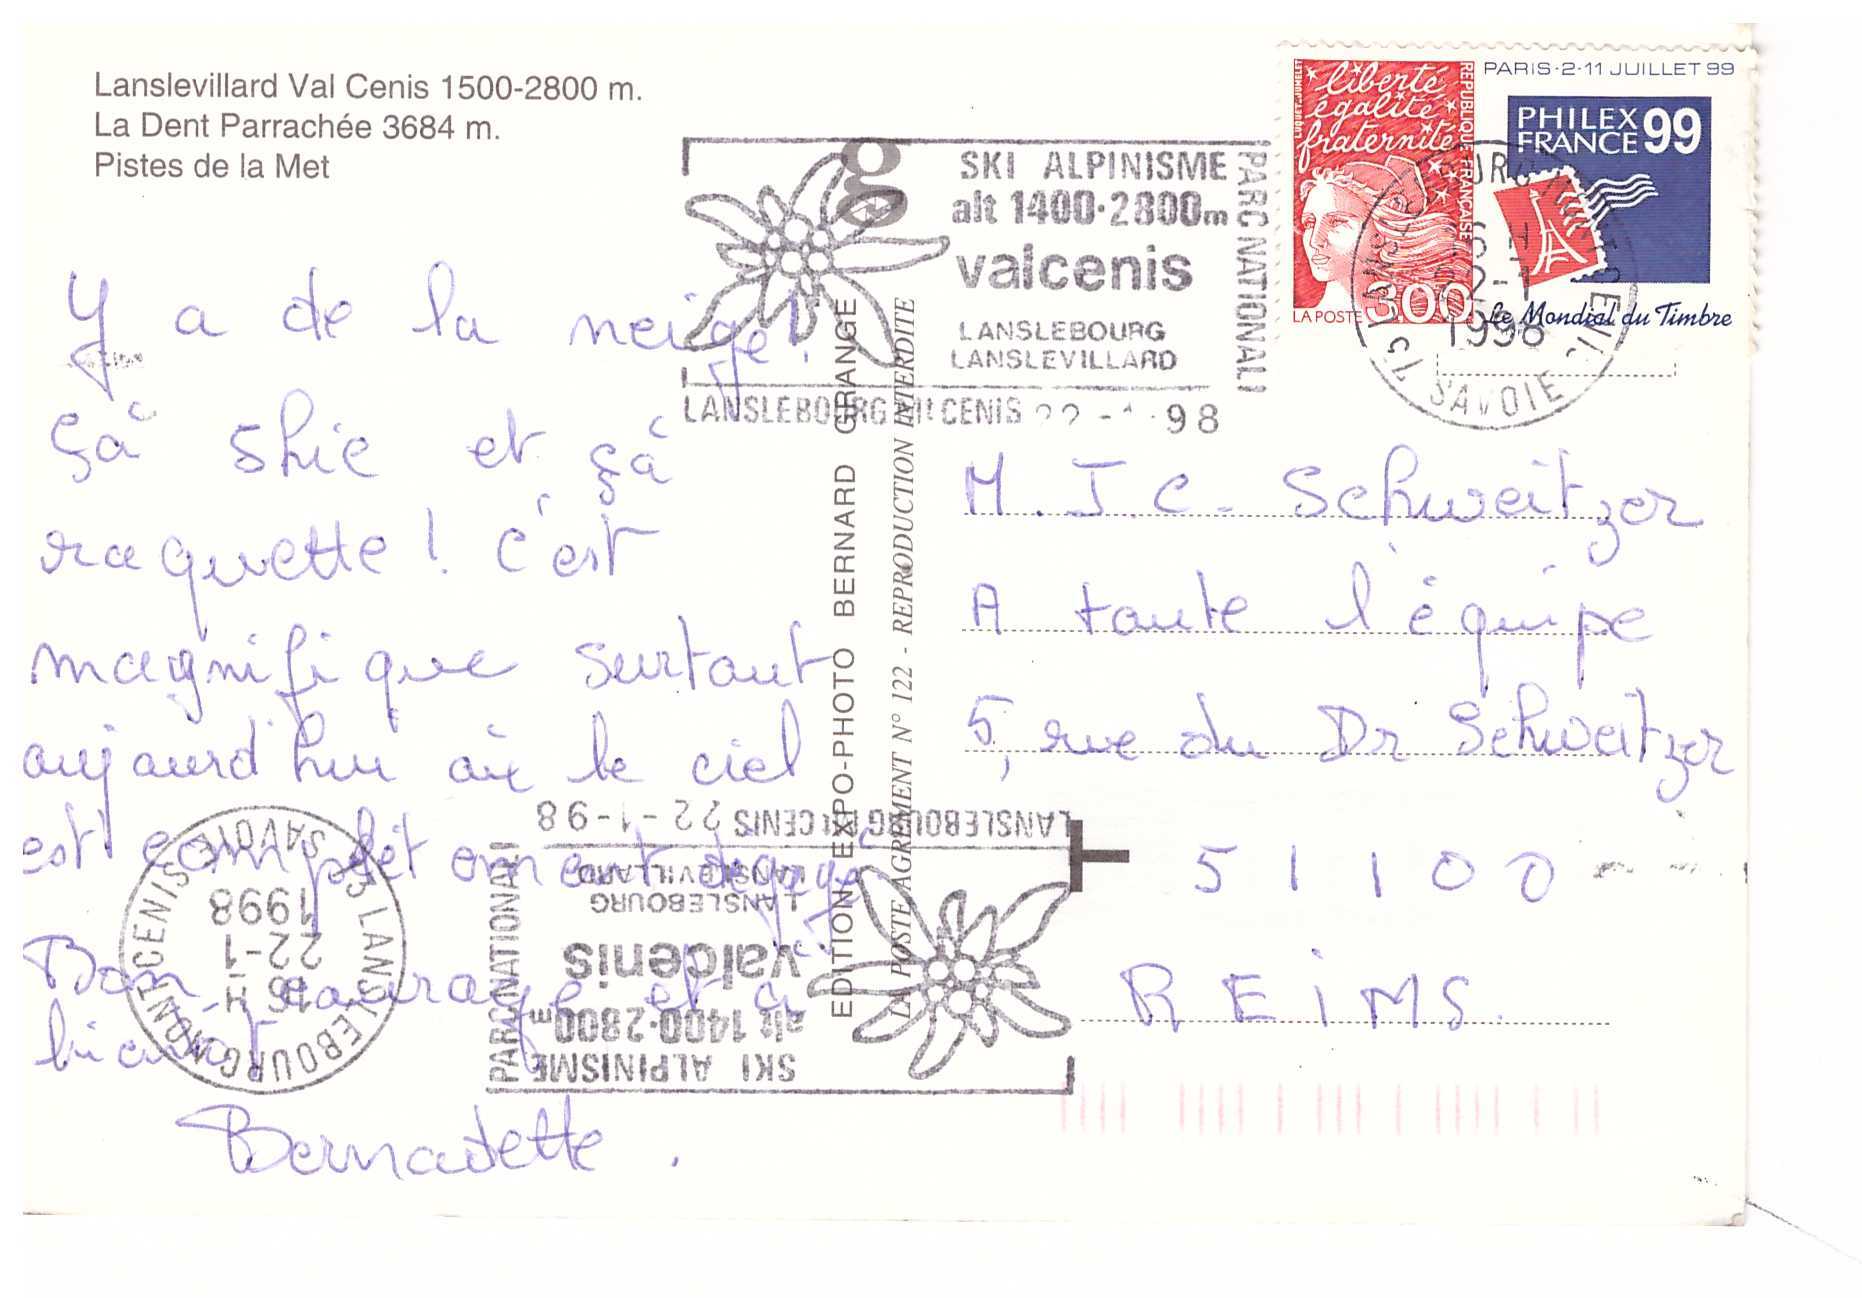 Lanslevillard Val Cenis 1500-2800 m.
La Dent Parrachée 3684 m.
Pistes de la Met
Y a de la neige !
çà skie et çà
raquette ! c'est
magnifique surtout
aujourd'hui où le ciel
est complètement dégagé
Bon courage et à
bientôt
Bernadette.
EDITION EXPO-PHOTO BERNARD GRANGE
LA POSTE AGREMENT N° 122 - REPRODUCTION INTERDITE
SKI ALPINISME
alt 1400-2800m
valcenis
LANSLEBOURG
LANSLEVILLARD
PARC NATIONAL
LANSLEBOURG Mt CENIS 22-1-98
liberté
égalité
fraternité
REPUBLIQUE FRANÇAISE
LA POSTE 3,00
PARIS·2·11 JUILLET 99
PHILEX
FRANCE 99
Le Mondial du Timbre
22-1
1998
SAVOIE
M. J.C. Schweitzer
A toute l'équipe
5, rue du Dr Schweitzer
51100
REIMS.
LANSLEBOURG Mt CENIS 22-1-98
LANSLEBOURG
LANSLEVILLARD
valcenis
alt 1400-2800m
SKI ALPINISME
PARC NATIONAL
LANSLEBOURG MONT CENIS
SAVOIE
16 H
22-1
1998